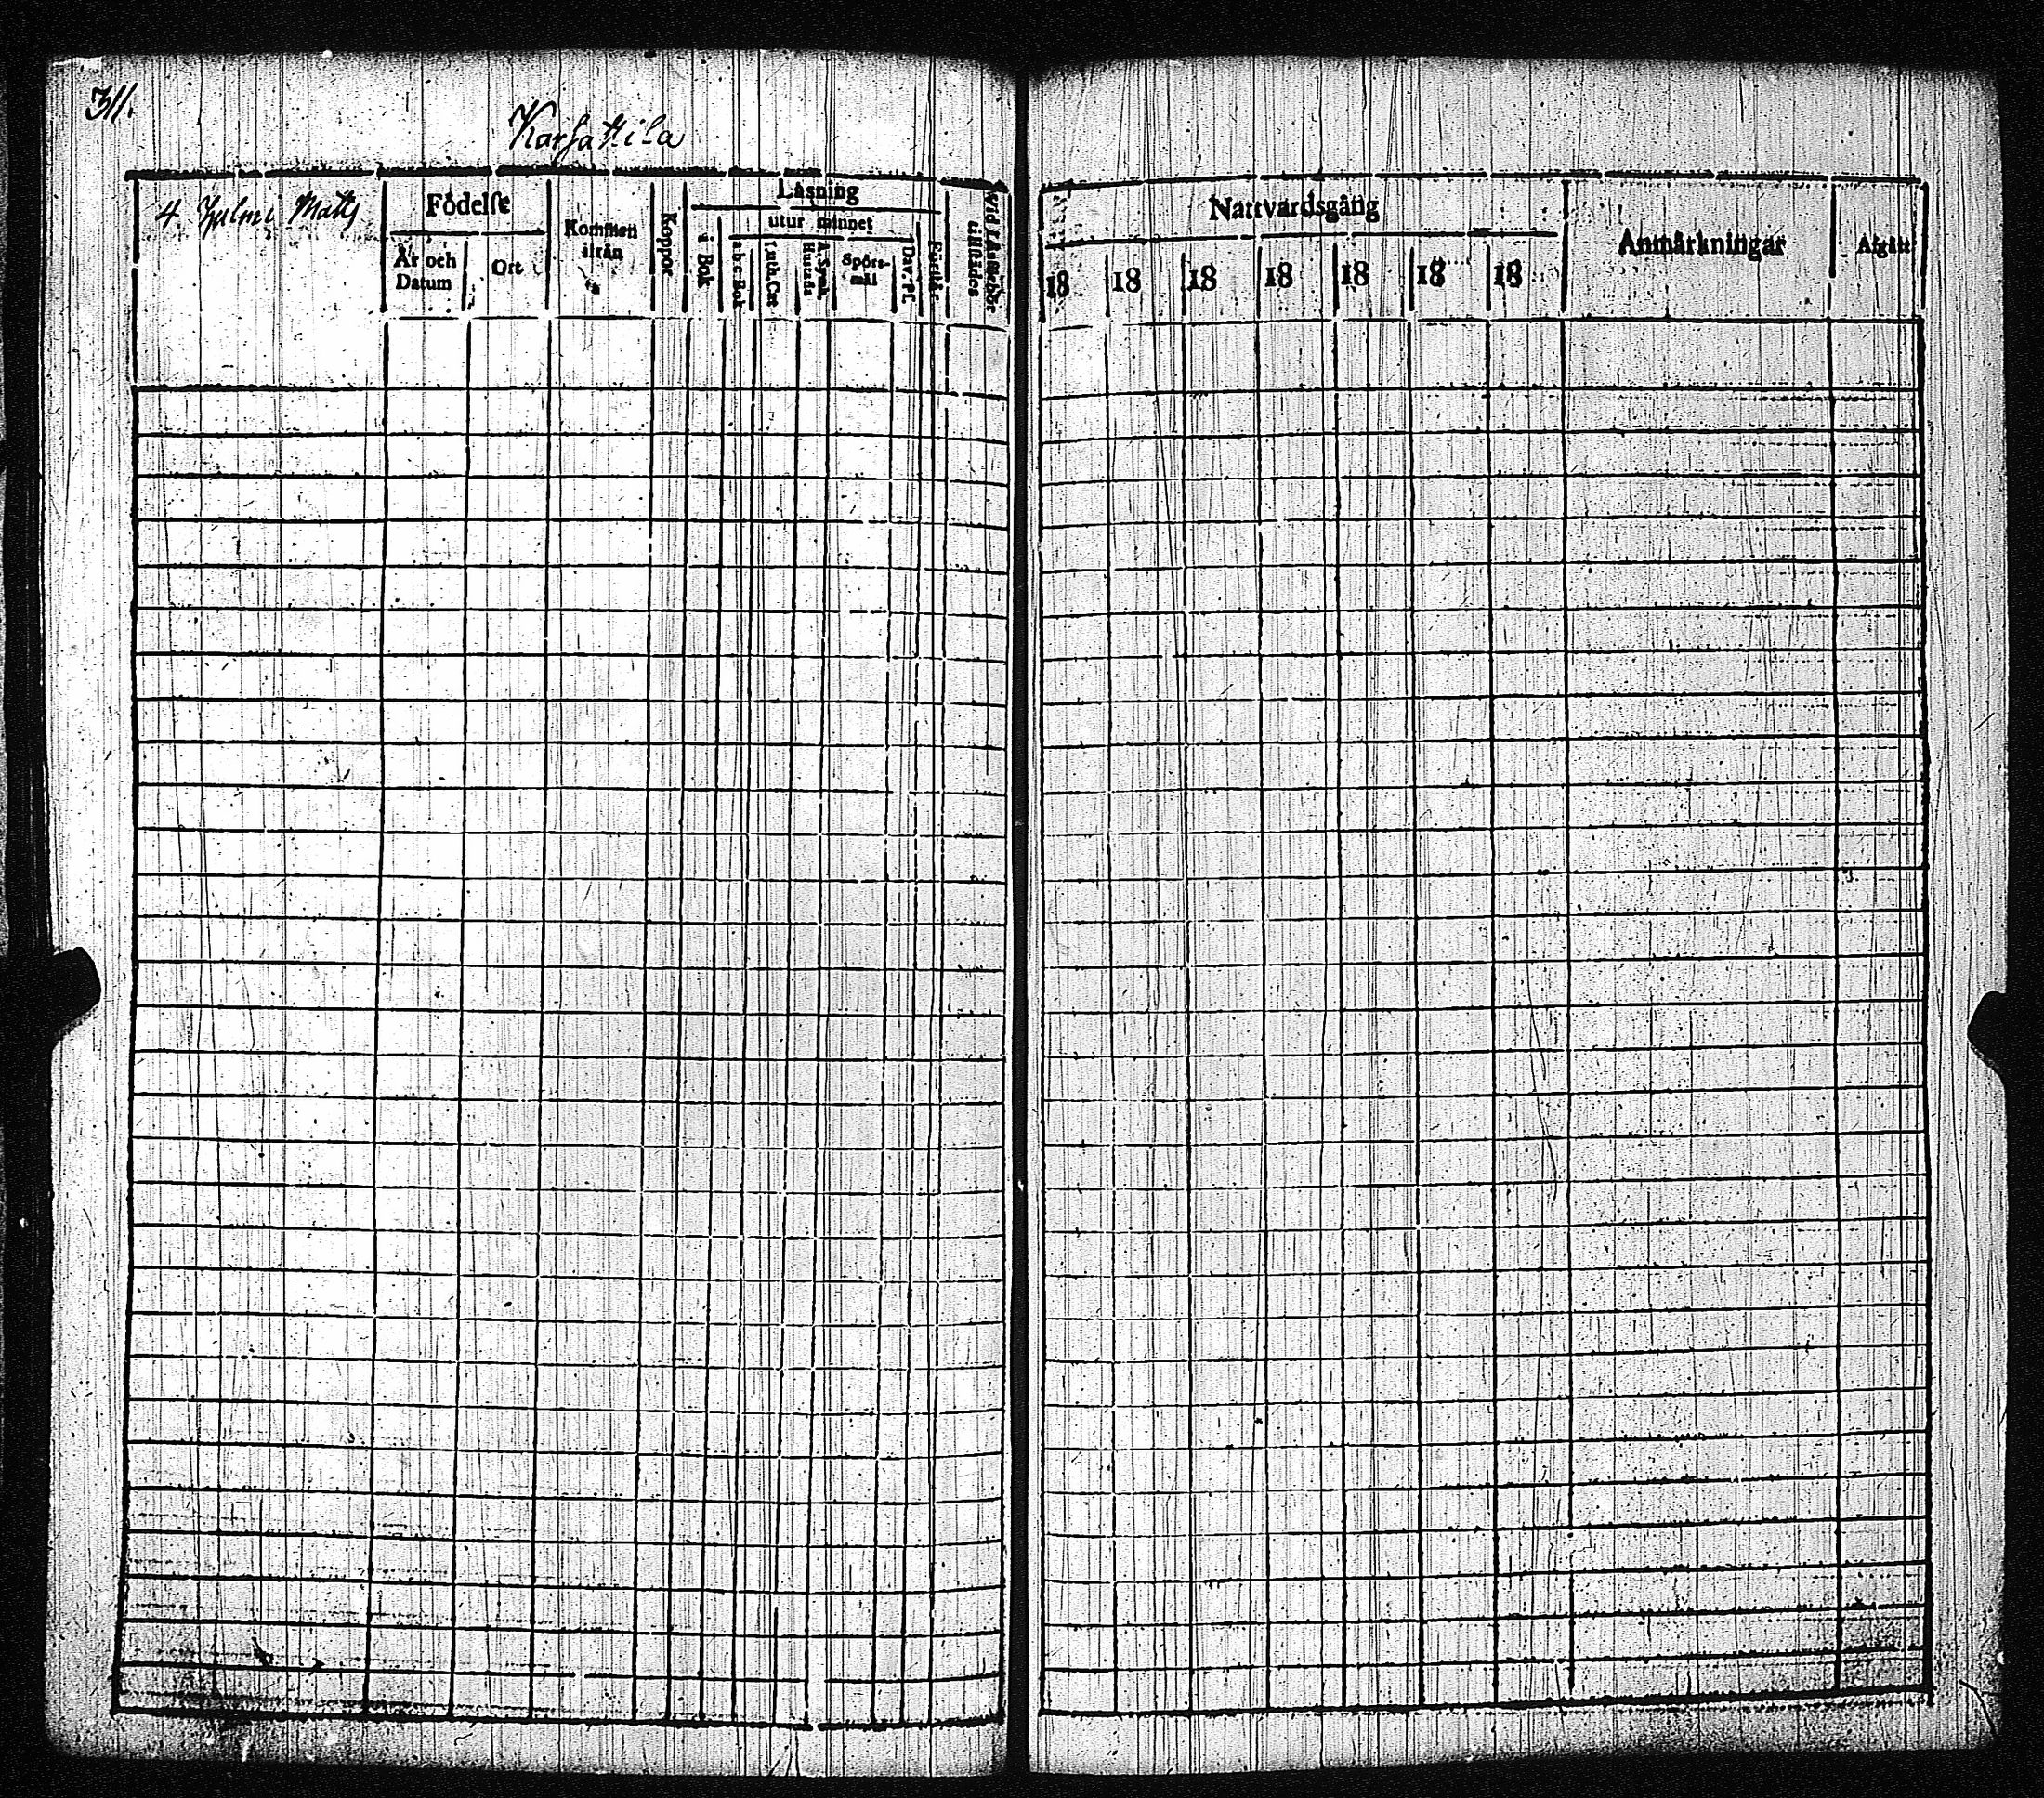 311.
Karhattila
4 Julmi Matts
Födelse
År och Datum
Ort
Kommen ifrån
Koppor
Läsning
i Bok
utur minnet
a b c Bok
Luth. Cat
A. Symb. Hustafla
Spörs-mål
Dav: ps.
Förstår
Vid Läsförhör tillstädes
Nattvardsgång
18 18 18 18 18 18 18
Anmärkningar
Afgått